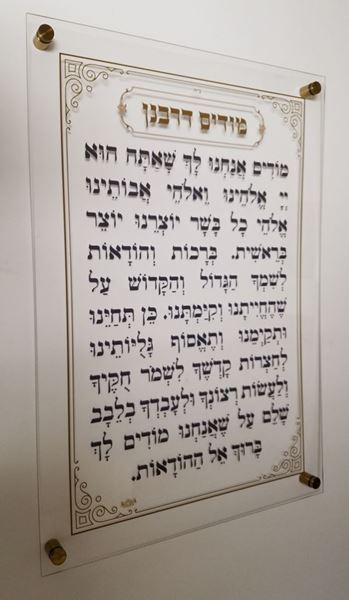 מודים דרבנן
מוֹדִים אֲנַחְנוּ לָךְ שָׁאַתָּה הוּא
יְיָ אֱלֹהֵינוּ וֵאלֹהֵי אֲבוֹתֵינוּ
אֱלֹהֵי כָל בָּשָׂר יוֹצְרֵנוּ יוֹצֵר
בְּרֵאשִׁית. בְּרָכוֹת וְהוֹדָאוֹת
לְשִׁמְךָ הַגָּדוֹל וְהַקָּדוֹשׁ עַל
שֶׁהֶחֱיִיתָנוּ וְקִיַּמְתָּנוּ. כֵּן תְּחַיֵּנוּ
וּתְקַיְּמֵנוּ וְתֶאֱסוֹף גָּלֻיּוֹתֵינוּ
לְחַצְרוֹת קָדְשֶׁךָ לִשְׁמֹר חֻקֶּיךָ
וְלַעֲשׂוֹת רְצוֹנֶךָ וּלְעָבְדְּךָ בְּלֵבָב
שָׁלֵם עַל שֶׁאֲנַחְנוּ מוֹדִים לָךְ
בָּרוּךְ אֵל הַהוֹדָאוֹת.